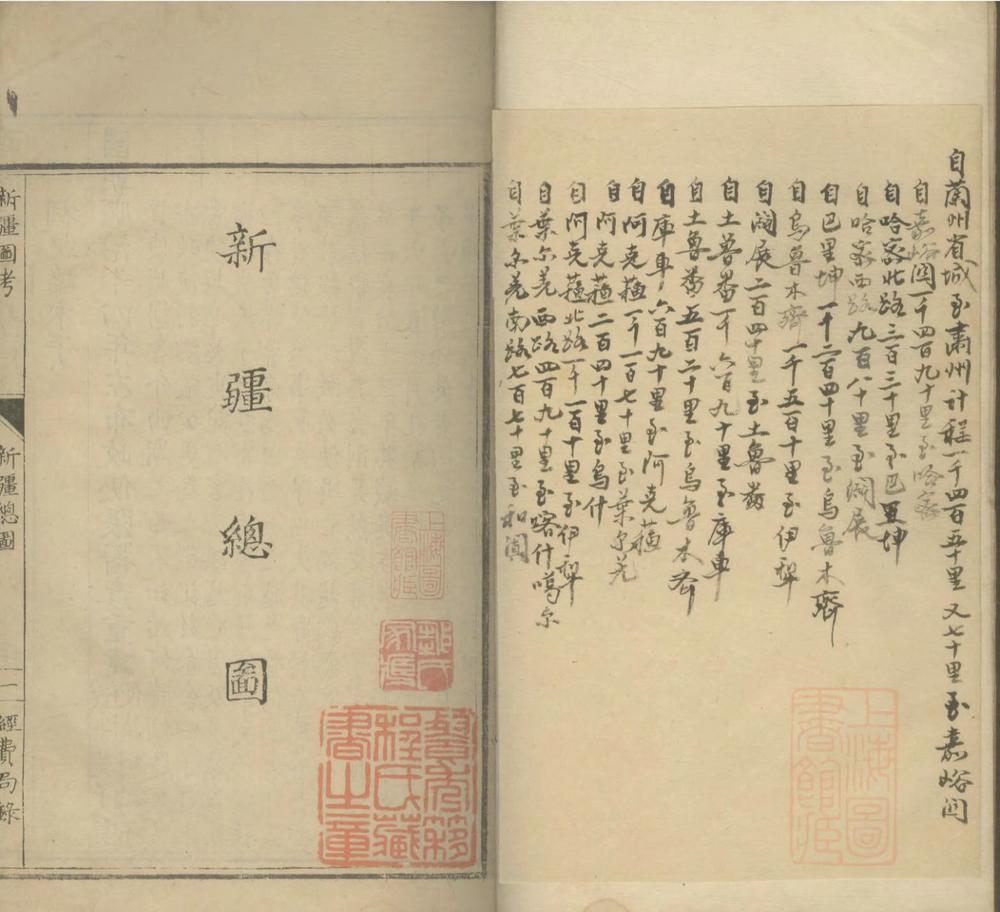 自蘭州省城至肅州計程一千四百五十里又七十里至嘉峪関
自嘉峪関一千四百九十里至哈宻
自哈宻北路三百三十里至巴里坤
自哈宻西路九百八十里至闢展
自巴里坤一千二百四十里至烏魯木齊
自烏魯木齊一千五百十里至伊犂
自闢展二百四十里至土魯番
自土魯番一千六百九十里至庫車
自土魯番五百二十里至烏魯木齊
自庫車六百九十里至阿克蘓
自阿克蘓一千一百七十里至葉尔羌
自阿克蘓二百四十里至烏什
自阿克蘓北路一千一百十里至伊犂
自葉尔羌西路四百九十里至喀什噶尔
自葉尔羌南路七百七十里至和闐
上海圖書館藏
新疆總圖
上海圖書館藏
程氏藏書之章
新疆圖考
新疆總圖
一
經費局錄